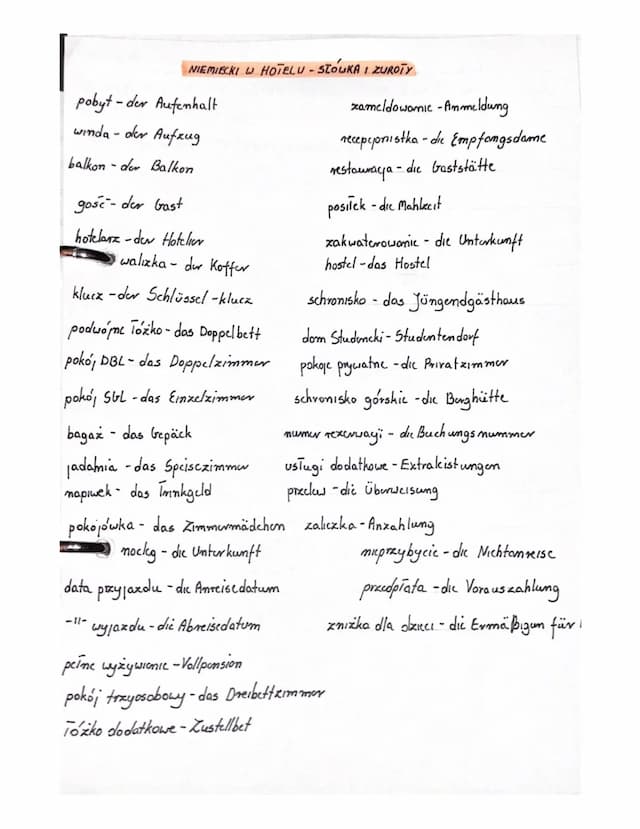 NIEMIECKI W HOTELU - SŁÓWKA I ZWROTY
pobyt - der Aufenhalt
winda - der Aufzug
balkon - der Balkon
gość - der Gast
hotelarz - der Hotelier
walizka - der Koffer
klucz - der Schlüssel - klucz
podwójne łóżko - das Doppelbett
pokój DBL - das Doppelzimmer
pokój SGL - das Einzelzimmer
bagaż - das Gepäck
jadalnia - das Speisezimmer
napiwek - das Trinkgeld
pokojówka - das Zimmermädchen
nocleg - die Unterkunft
data przyjazdu - die Anreisedatum
-"- wyjazdu - die Abreisedatum
pełne wyżywienie - Vollpension
pokój trzyosobowy - das Dreibettzimmer
łóżko dodatkowe - Zustellbet
zameldowanie - Anmeldung
recepcjonistka - die Empfangsdame
restauracja - die Gaststätte
posiłek - die Mahlzeit
zakwaterowanie - die Unterkunft
hostel - das Hostel
schronisko - das Jüngendgästhaus
dom studencki - Studentendorf
pokoje prywatne - die Privatzimmer
schronisko górskie - die Berghütte
numer rezerwacji - die Buchungsnummer
usługi dodatkowe - Extraleistungen
przelew - die Überweisung
zaliczka - Anzahlung
nieprzybycie - die Nichtanreise
przedpłata - die Vorauszahlung
zniżka dla dzieci - die Ermäßigun für